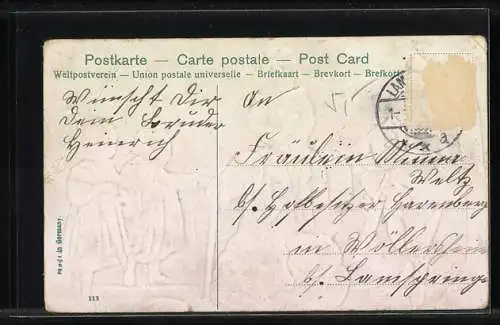 Postkarte — Carte postale — Post Card
Weltpostverein — Union postale universelle — Briefkaart — Brevkort — Brefkort
Wünscht Dir
Dein Bruder
Heinrich
An
Fräulein Minna
Weltz
b/. Hofbesitzer Harenberg
in Wöllersheim
b/. Lamspringe
Made in Germany.
113